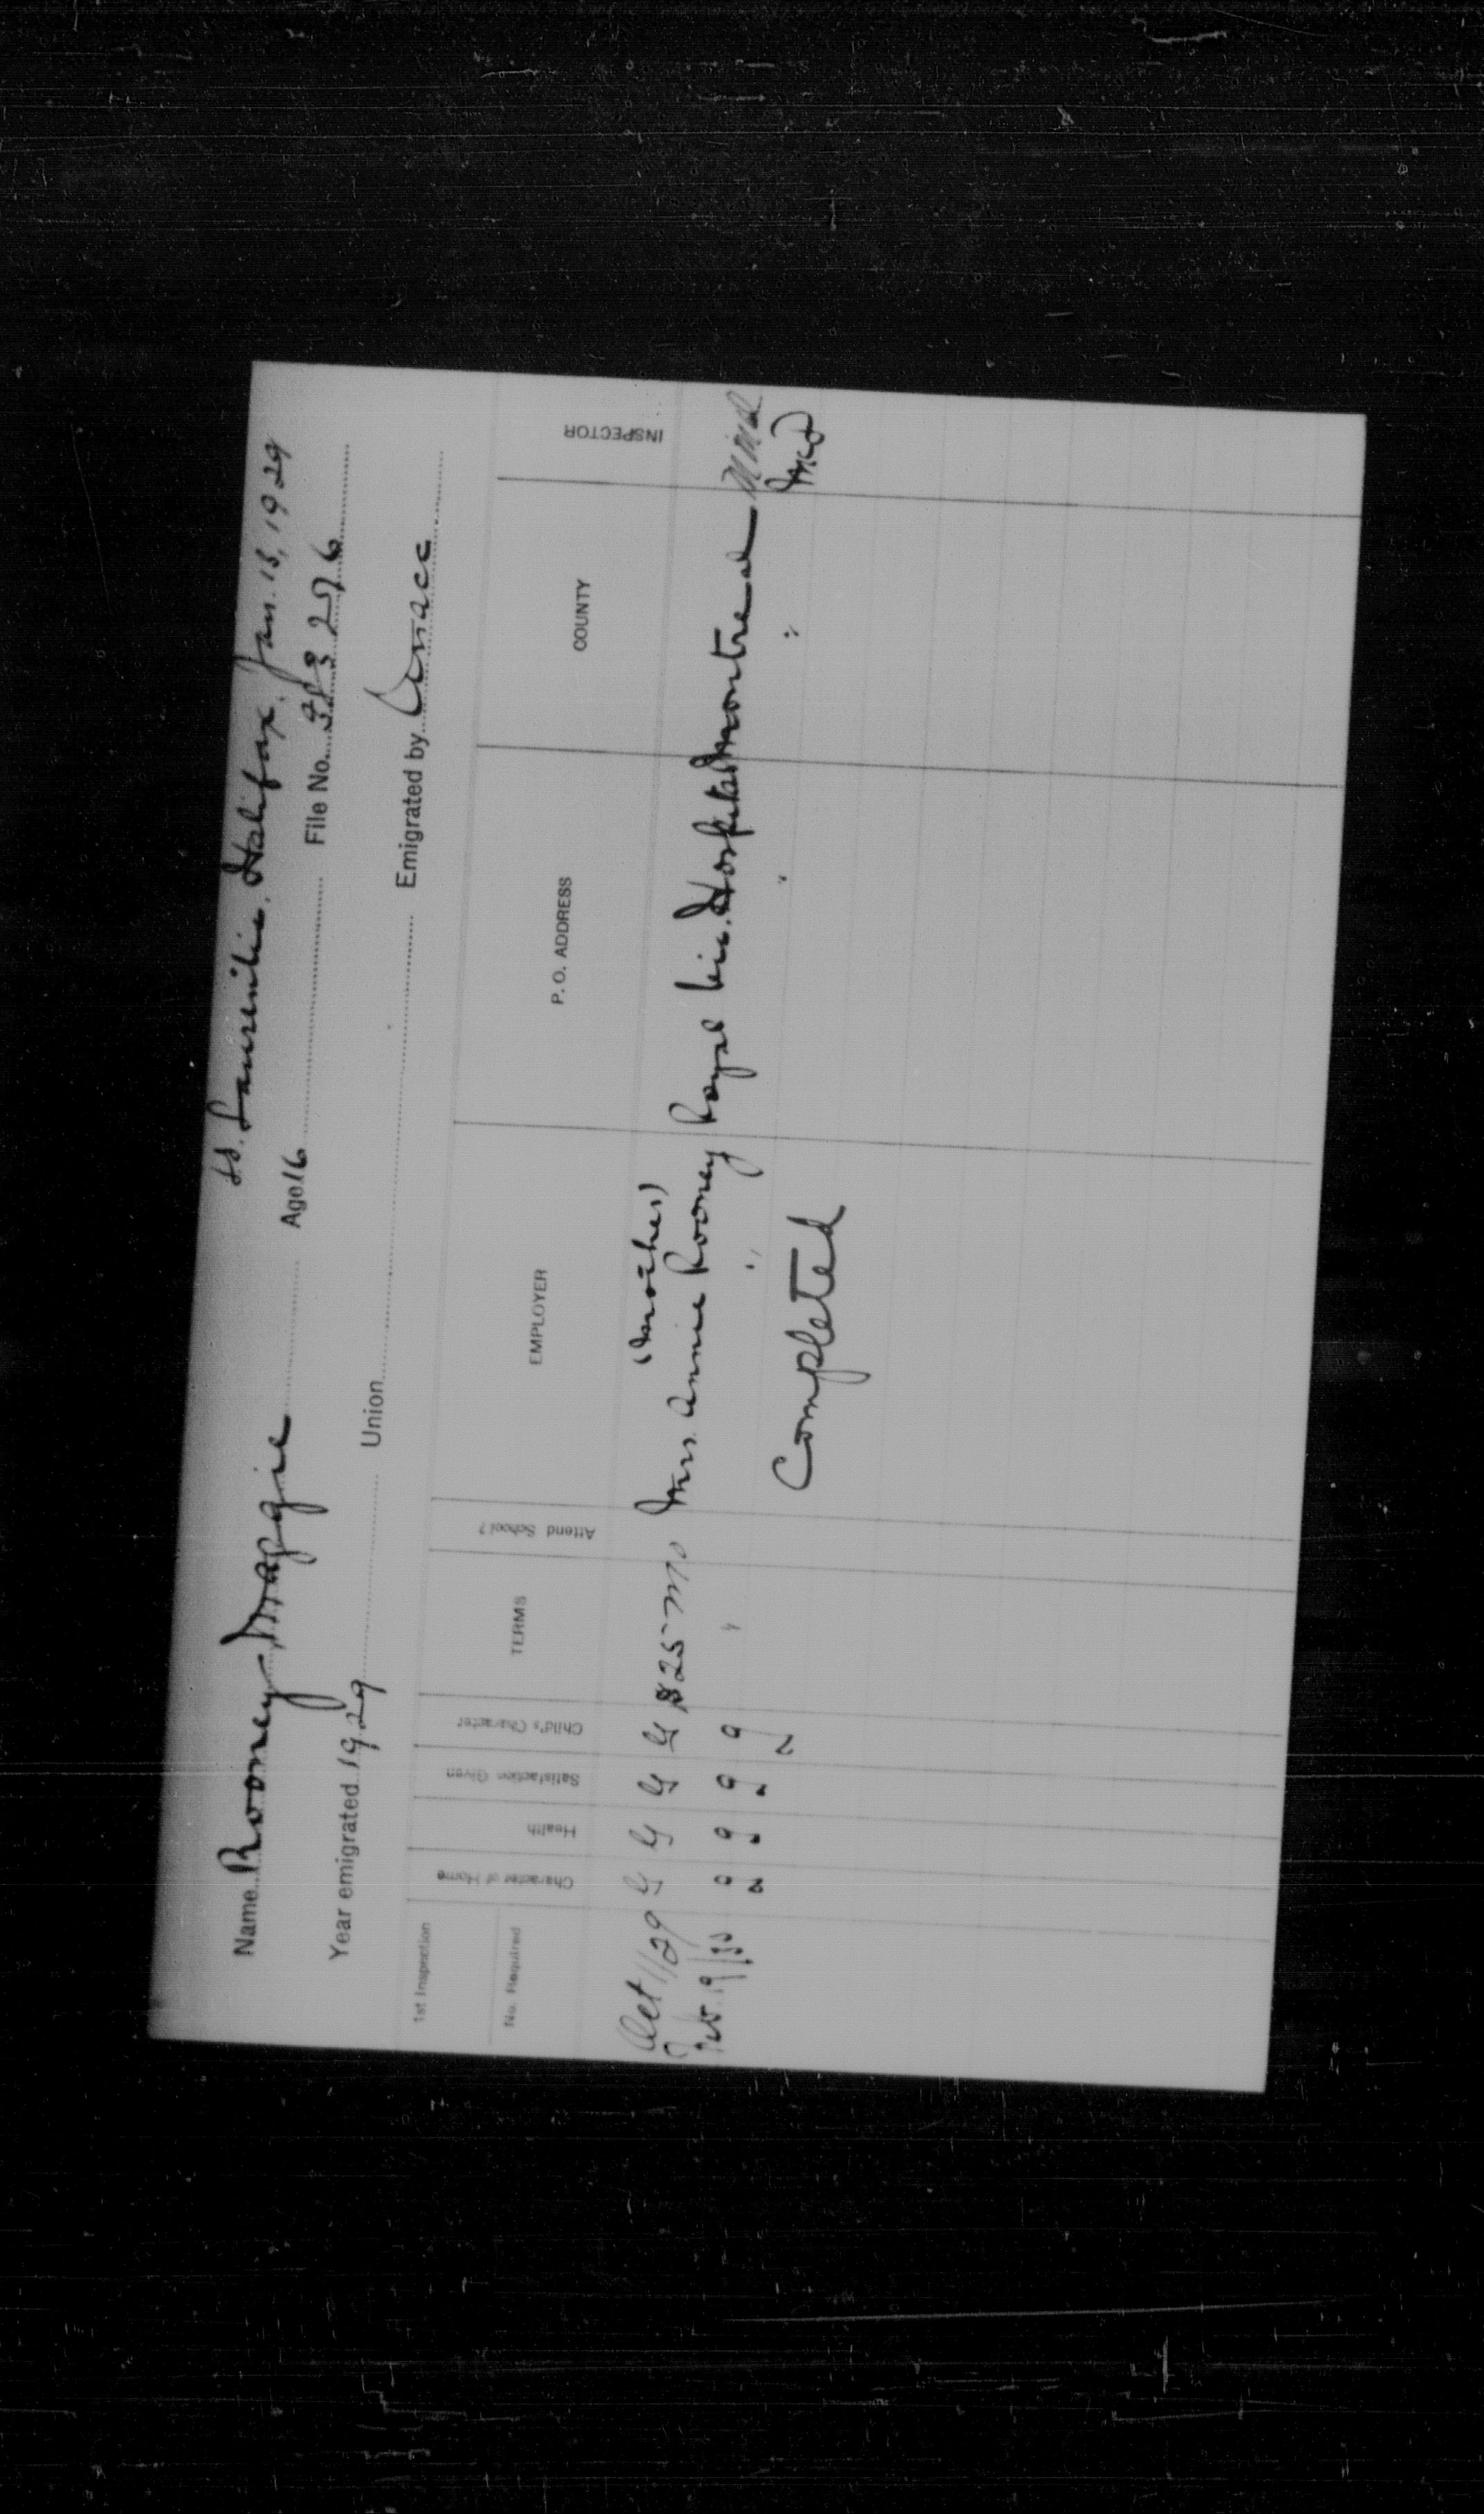 SS. Laurentic. Halifax. Jan. 13, 1929
Name Rooney Maggie Age 16 File No.
Year emigrated 1929 Union Emigrated by
1st Inspection
No. Required Character of Home Health Satisfaction Given Child's Character TERMS Attend School? EMPLOYER P. O. ADDRESS COUNTY INSPECTOR
(mother)
Oct 1/29 G G G G $25 mo Mrs. Annie Rooney Royal Vic. Hospital Montreal
Feb. 19/30 g g g " " " "
Completed